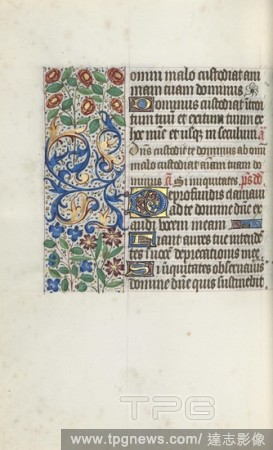 omni malo custodiat ani
mam tuam dominus
Dominus custodiat introi
tum tuum et exitum tuum ex
hoc nūc et usq; in seculum a
Dns custodit te dominus ab omi
malo custodiat animam tuam do
minus a Si iniquitates. ps dd
De profundis clamavi
ad te domine dñe ex
audi vocem meam
Fiant aures tue intende
tes in voce deprecationis mee
Si iniquitates observaveris
domine dñe quis sustinebit
TPG
www.tpgnews.com/達志影像